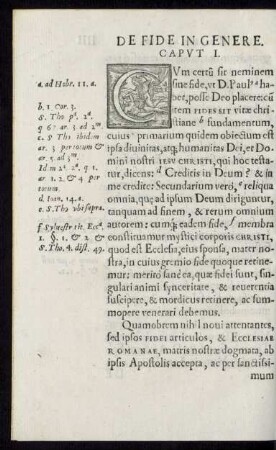 DE FIDE IN GENERE.
CAPVT I.
CVm certũ sit neminem
sine fide, vt D. Paulᵒ ᵃ ha
bet, posse Deo placere: cũ
item FIDES SIT vitæ chri
stianæ ᵇ fundamentum,
cuius ᶜ primarium quidem obiectum est
ipsa diuinitas, atq; humanitas Dei, et Do
mini nostri IESV CHRISTI, qui hoc testa-
tur, dicens: ᵈ Creditis in Deum? & in
me credite: Secundarium verò, ᵉ reliqua
omnia, quæ ad ipsum Deum diriguntur,
tanquam ad finem, & rerum omnium
autorem: cumq; eadem fide, ᶠ membra
constituamur mystici corporis CHRISTI,
quod est Ecclesia, eius sponsa, mater no-
stra, in cuius gremio fide quoque retine-
mur: meritò sanè ea, quæ fidei sunt, sin-
gulari animi synceritate, & reuerentia
suscipere, & mordicus retinere, ac sum-
mopere venerari debemus.
Quamobrem nihil noui attentantes,
sed ipsos FIDEI articulos, & ECCLESIAE
ROMANAE, matris nostræ dogmata, ab
ipsis Apostolis accepta, ac per sanctissi-
mum
a. ad Hebr. 11. a.
b. 1. Cor. 3.
c. S. Tho. pᵃ. 2ᵃ.
c S Tho ibidem
ar. 3 per totum &
ar. 5 ad 3ᵐ.
Id.m 2ᵃ 2ᵃ. q 1.
ar 1. 2. & 4 per
totum.
d. Ioan. 14. a.
e. S. Tho vbi supra.
§. 1. & 2 &
S. Tho. 4. dist. 49.